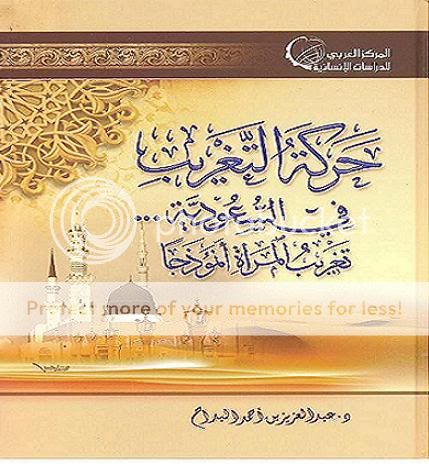 المركز العربي
للدراسات الإنسانية
حَركة التَّغريب
في السّعُوديّة ...
تغريبُ المرأة أنموذجًا
Protect more of your memories for less!
د. عبدالعزيز بن أحمد البداح